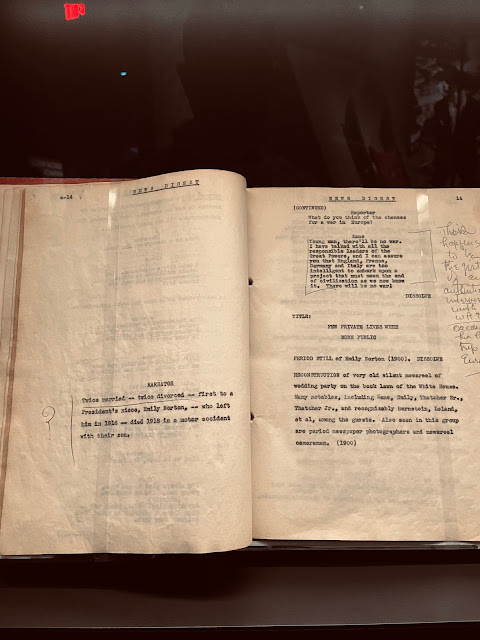 m-14
NEWS DIGEST
NARRATOR
Twice married -- twice divorced -- first to a
President's niece, Emily Norton, -- who left
him in 1916 -- died 1918 in a motor accident
with their son.
?
NEWS DIGEST
14
(CONTINUED)
Reporter
What do you think of the chances
for a war in Europe?
Kane
Young man, there'll be no war.
I have talked with all the
responsible leaders of the
Great Powers, and I can assure
you that England, France,
Germany and Italy are too
intelligent to embark upon a
project that must mean the end
of civilization as we now know
it. There will be no war!
DISSOLVE
TITLE:
FEW PRIVATE LIVES WERE
MORE PUBLIC
PERIOD STILL of Emily Norton (1900). DISSOLVE
RECONSTRUCTION of very old silent newsreel of
wedding party on the back lawn of the White House.
Many notables, including Kane, Emily, Thatcher Sr.,
Thatcher Jr., and recognizably Bernstein, Leland,
et al, among the guests. Also seen in this group
are period newspaper photographers and newsreel
cameramen. (1900)
happens
to be
with
trip